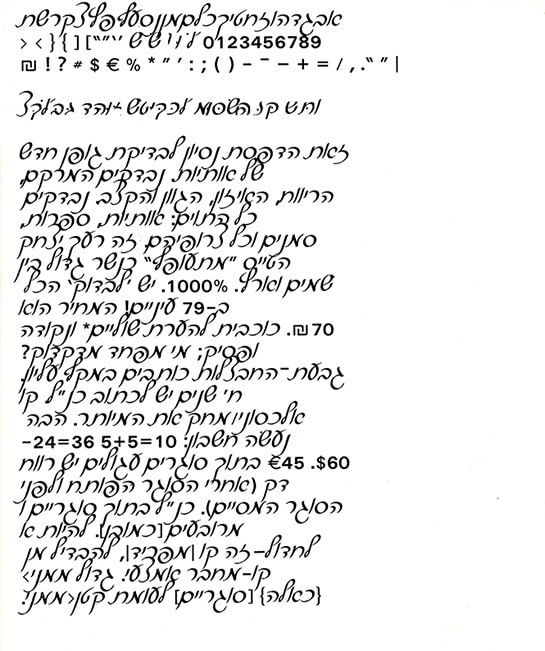 אבגדהוזחטיךכלםמןנסעףפץצקרשת
0123456789
₪ ! ? # $ € % * ״ ׳ : ; ( ) - – − + = / , . “ ” |
זאת הדפסת נסיון לבדיקת גופן חדש
של אותיות. נבדקים המרקם,
הריווח, האיזון, הגוון והקצב. נבדקים
כל התוים: אותיות, ספרות,
סמנים וכל צרופיהם. זה רעך יצחק
הטייס ״מתעופף״ כנשר גדול בין
שמים וארץ. 1000%. יש 'לבדוק' הכל
ב-79 עיניים! המחיר הוא
70₪. כוכבית להערת שוליים* ונקודה
ופסיק; מי מפחד מדקדוק?
גבעת-החבצלות כותבים במקף עליון.
חי שנים יש לכתוב כנ״ל. קו
אלכסוני/מחק את המיותר. הבה
נעשה חשבון: 10=5+5 36=24-
60$. 45€ בתוך סוגרים עגולים יש רווח
דק (אחרי הסוגר הפותח ולפני
הסוגר המסיים). כנ״ל בתוך סוגריים
מרובעים [כמובן]. להיות א
לחדול–זה קו |מפריד|, להבדיל מן
קו-מחבר אמצעי. גדול ממני>
{כאלה} [סוגריים] לעומת קטן<ממני.